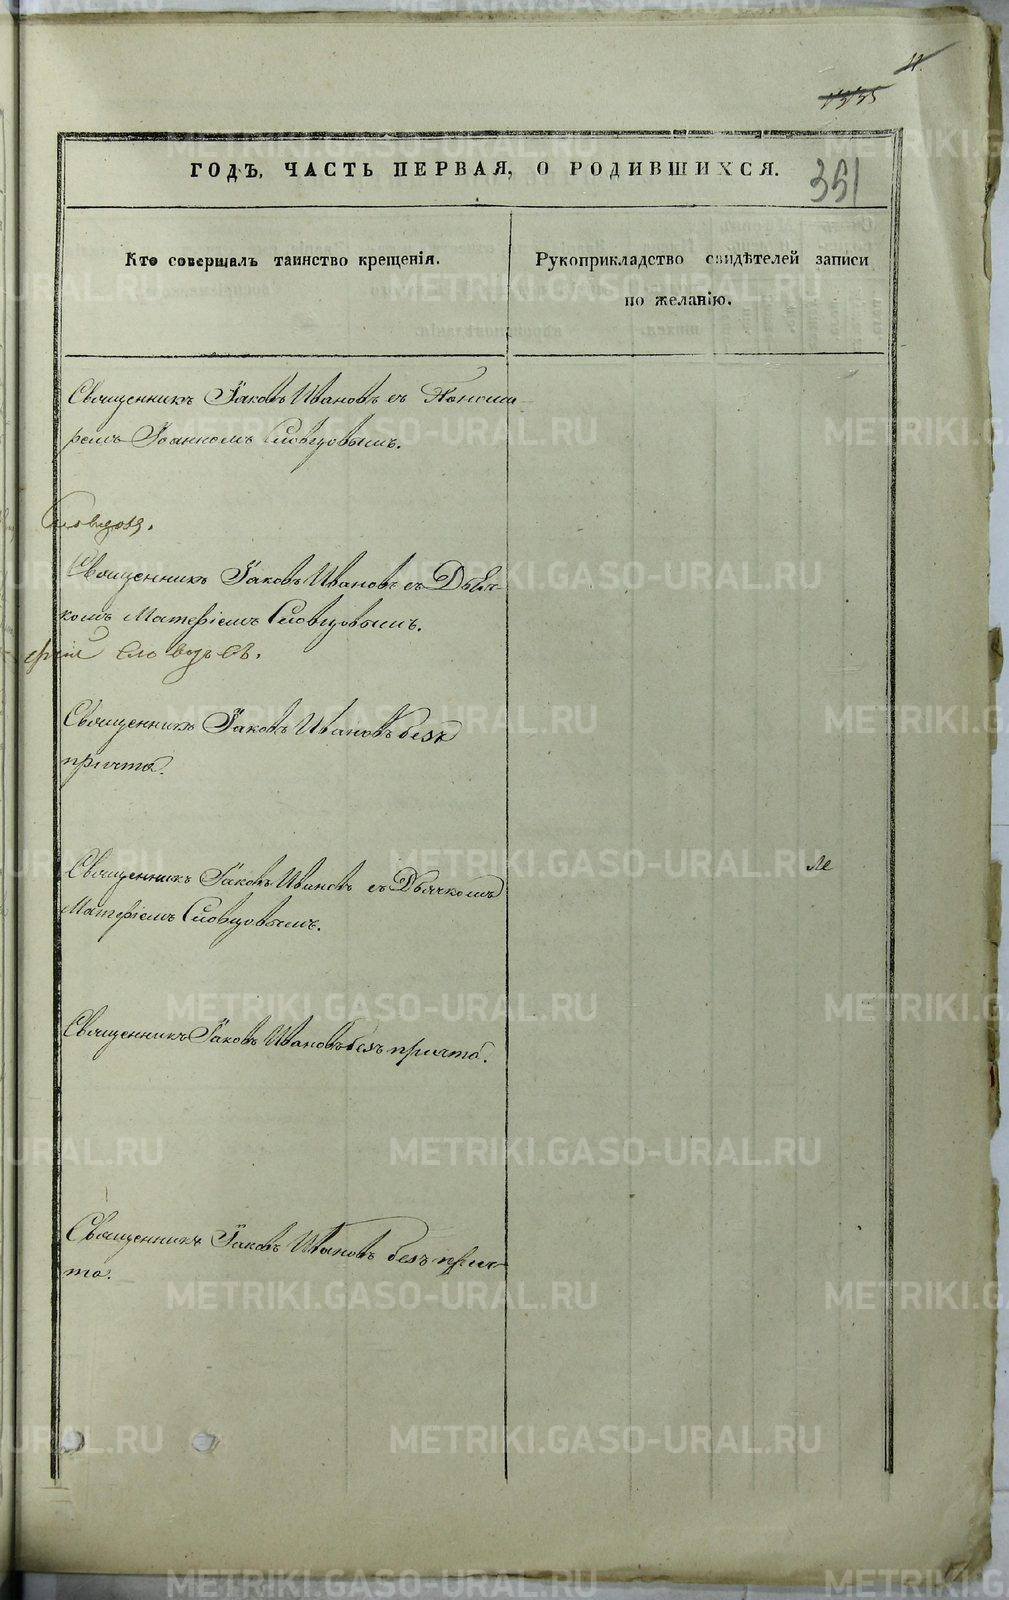 11.
1335
ГОДЪ, ЧАСТЬ ПЕРВАЯ, О РОДИВШИХСЯ.
351
Кто совершалъ таинство крещенія.
Рукоприкладство свидѣтелей записи
по желанію.
Священникъ Іаковъ Ивановъ съ Поном-
ремъ Іоанномъ Словцовымъ.
Священникъ Іаковъ Ивановъ съ Дьяч-
комъ Матфіемъ Словцовымъ.
Словцовъ.
Священникъ Іаковъ Ивановъ безъ
причта.
Священникъ Іаковъ Ивановъ съ Дьячкомъ
Матфіемъ Словцовымъ.
Священникъ Іаковъ Ивановъ безъ причта.
Священникъ Іаковъ Ивановъ безъ прич-
та.
METRIKI.GASO-URAL.RU